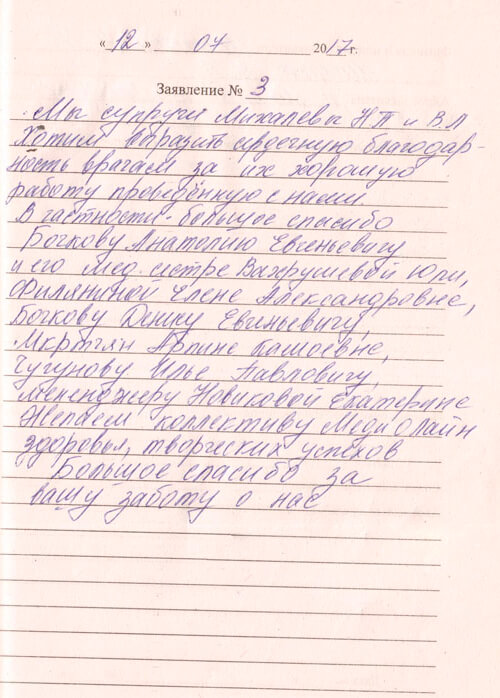 « 12 » 07 2017г.
Заявление № 3
Мы супруги Михалевы Н П и В.Л
Хотим выразить сердечную благодар-
ность врачам за их хорошую
работу проведённую с нами.
В частности - большое спасибо
Бочкову Анатолию Евгеньевичу
и его мед. сестре Вахрушевой Юли,
Филяниной Елене Александровне,
Бочкову Денису Евгеньевичу,
Мкртчян Арпине Кашоевне,
Чугунову Илье Павловичу,
менеджеру Новиковой Екатерине
Желаем коллективу МедиОлайн
здоровья, творческих успехов
Большое спасибо за
вашу заботу о нас